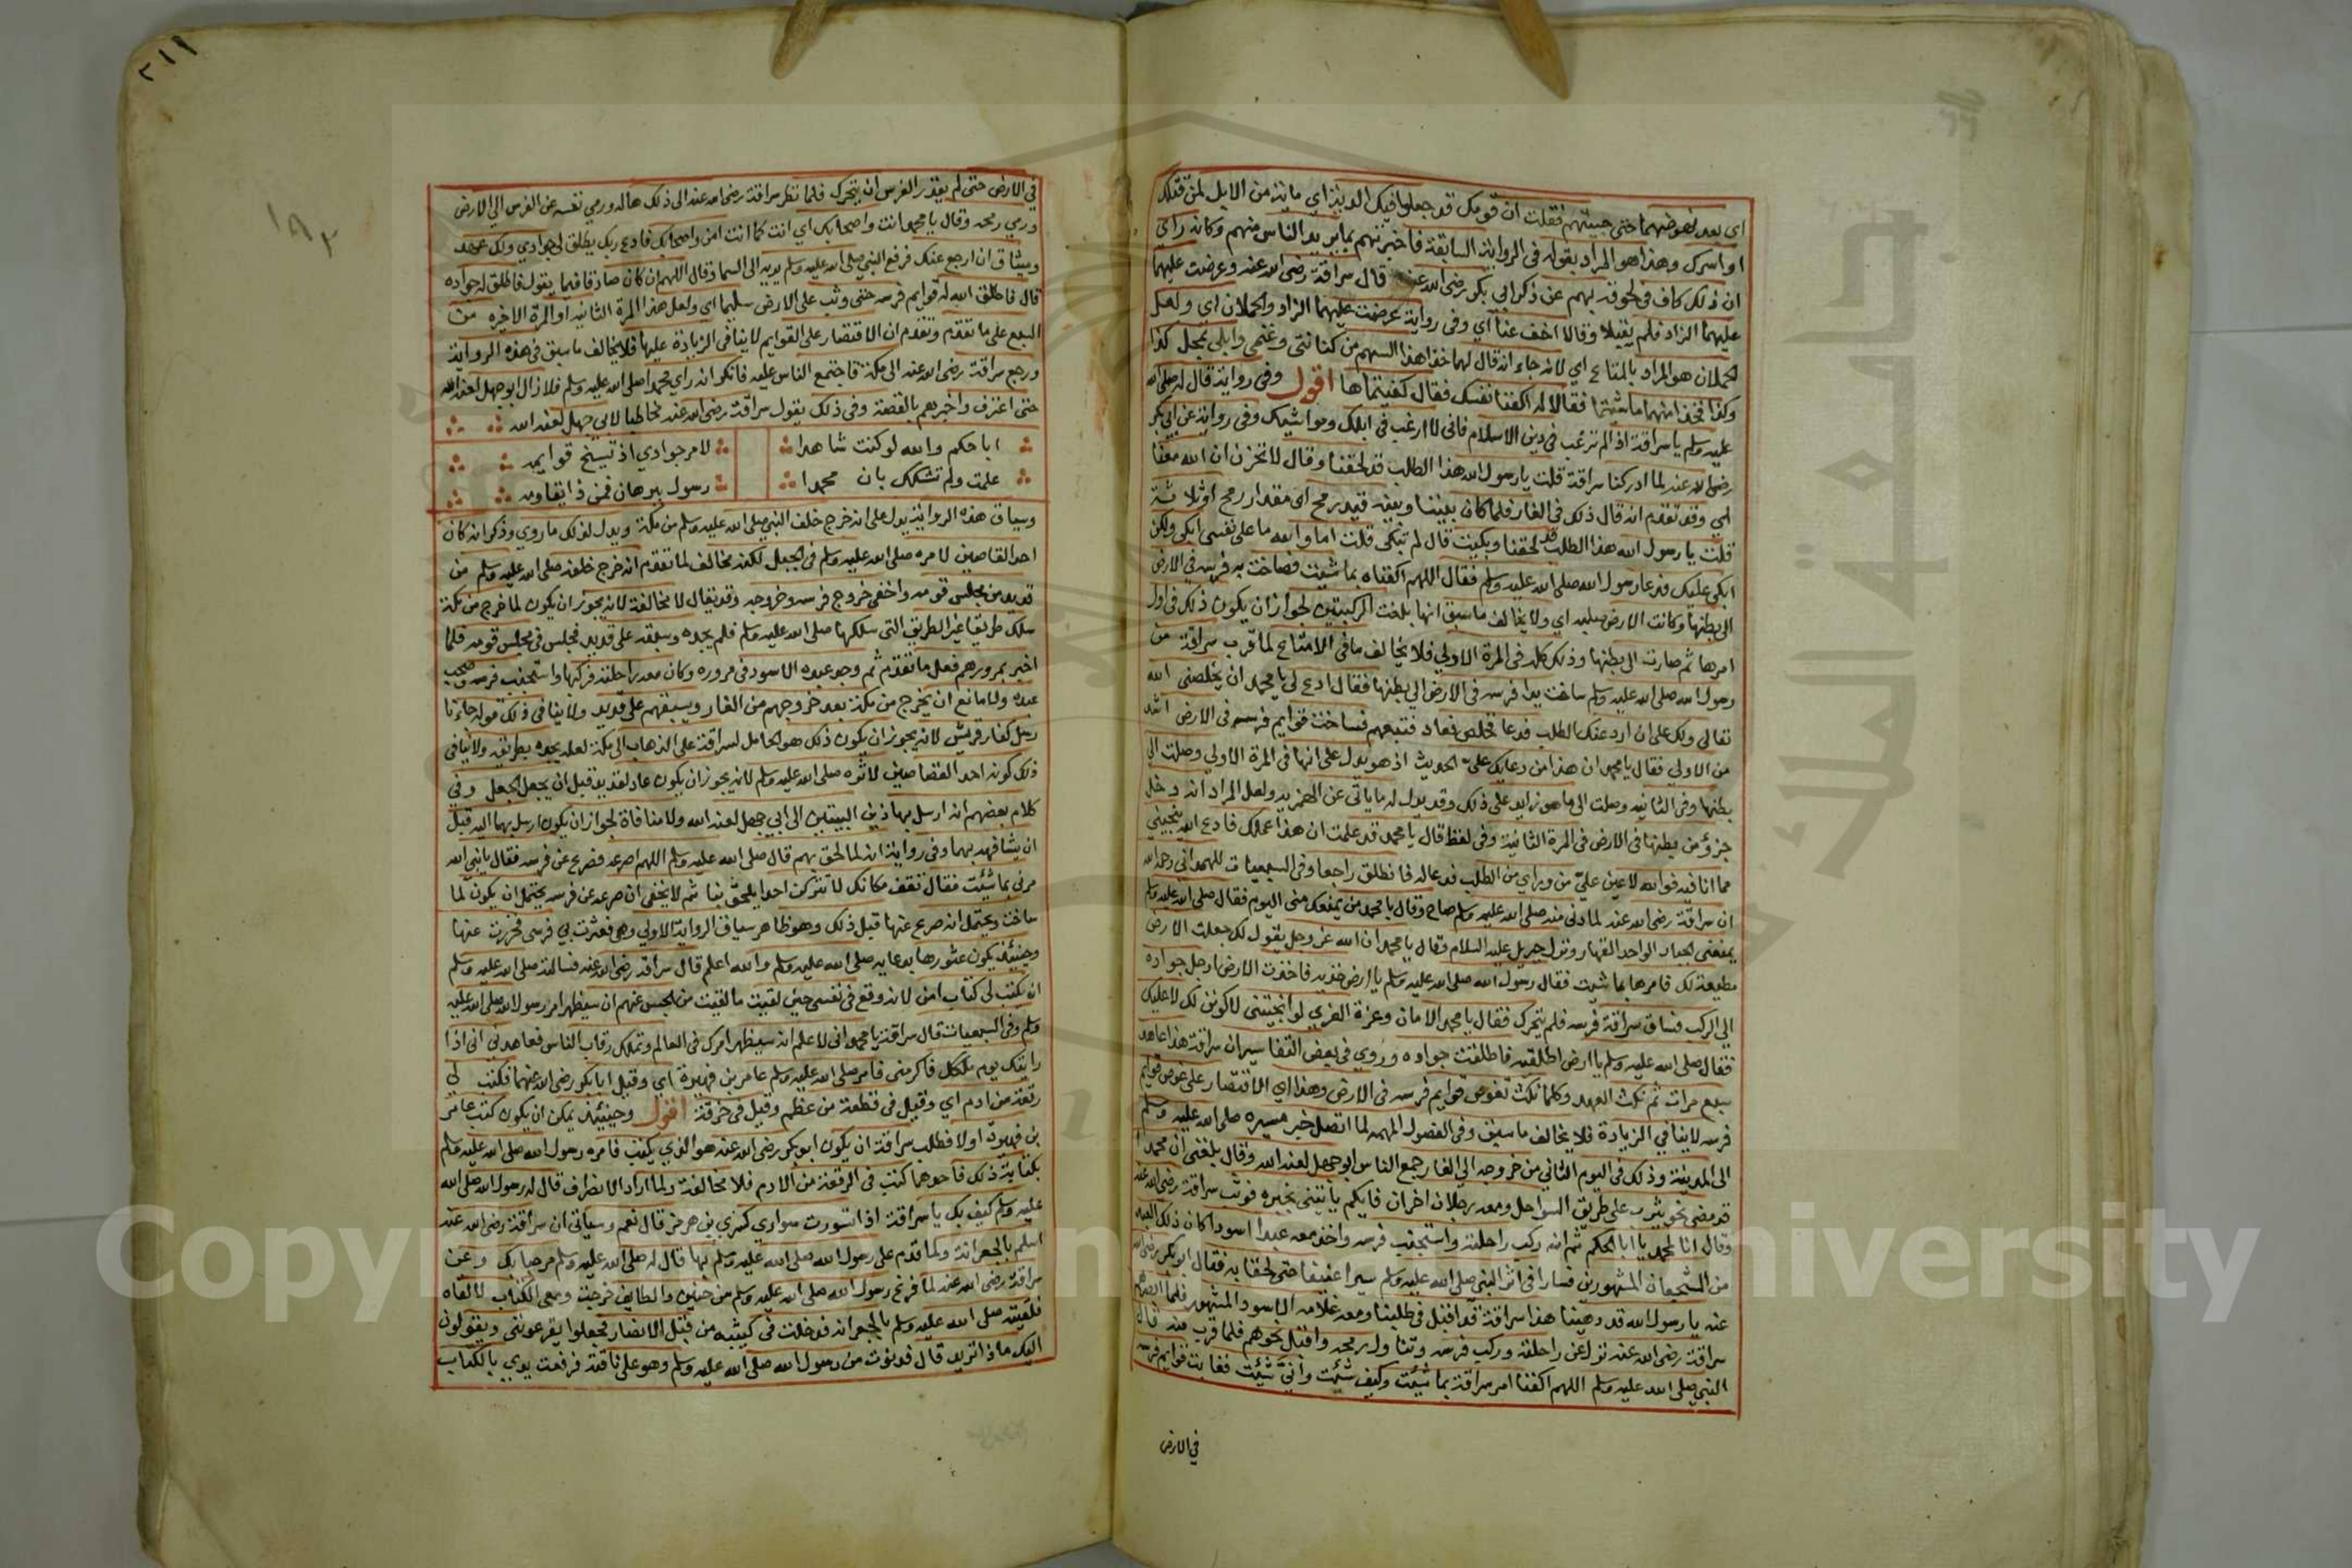 اى بعد نهوضهما حتى جيتهم فقلت ان قومك قد جعلوا فيك الدية اي ماية من الابل لمن قتلك
او اسرك وهذا هو المراد بقوله فى الرواية السابقة فاخبرتهم بما يريد الناس منهم وكانه راي
ان ذلك كاف فى لحوقه بهم عن ذكر ابى بكر رضى الله عنه قال سراقة رضى الله عنه وعرضت عليهما
عليهما الزاد فلم يقبلا وقالا اخف عنا اي وفى رواية عرضت عليهما الزاد والحملان اى ولعل
الحملان هو المراد بالمتاع اي لانه جاء انه قال لهما خذا هذا السهم من كنانتى وغنمى وابلى بمحل كذا
وكذا فخذا منهما ما شيتما فقالا له اكفنا نفسك فقال كفيتماها اقول وفى رواية قال له صلى الله
عليه وسلم يا سراقة اذا لم ترغب فى دين الاسلام فانى لا ارغب فى ابلك ومواشيك وفى رواية عن ابى بكر
رضى الله عنه لما ادركنا سراقة قلت يا رسول الله هذا الطلب قد لحقنا وقال لا تحزن ان الله معنا
اي وقد تقدم انه قال ذلك فى الغار فلما كان بيننا وبينه قيد رمح اى مقدار رمح او ثلاثة
قلت يا رسول الله هذا الطلب قد لحقنا وبكيت قال لم تبكى قلت اما والله ما على نفسى ابكى ولكن
ابكى عليك فدعا رسول الله صلى الله عليه وسلم فقال اللهم اكفناه بما شيت فصاخت به فرسه فى الارض
الى بطنها وكانت الارض صلبه اى ولا يخالف ما سبق انها بلغت الركبتين لجواز ان يكون ذلك فى اول
امرها ثم صارت الى بطنها وذلك كله فى المرة الاولى فلا يخالف ما فى الامتاع لما قرب سراقة من
رسول الله صلى الله عليه وسلم ساخت يدا فرسه فى الارض الى بطنها فقال ادع لى يا محمد ان يخلصنى الله
تعالى ولك على ان ارد عنك الطلب فدعا فخلص فعاد فتبعهم فساخت قوايم فرسه فى الارض اشد
من الاولى فقال يا محمد ان هذا من دعايك على الحديث اذ هو يدل على انها فى المرة الاولى وصلت الى
بطنها وفى الثانيه وصلت الى ما هو زايد على ذلك وقد يدل له ما ياتى عن الهمزيه ولعل المراد انه دخل
جزؤ من بطنها فى الارض فى المرة الثانية وفى لفظ قال يا محمد قد علمت ان هذا عملك فادع الله ينجينى
مما انا فيه فوالله لاعين على من وراي من الطلب فدعا له فانطلق راجعا وفى السبعيات للهمدانى رحمه الله
ان سراقة رضى الله عنه لما دنى منه صلى الله عليه وسلم صاح وقال يا محمد من يمنعك منى اليوم فقال صلى الله عليه وسلم
يمنعنى الجبار الواحد القهار ونزل جبريل عليه السلام فقال يا محمد ان الله عز وجل يقول لك جعلت الارض
مطيعة لك فامرها بما شيت فقال رسول الله صلى الله عليه وسلم يا ارض خذيه فاخذت الارض ارجل جواده
الى الركب فساق سراقة فرسه فلم يتحرك فقال يا محمد الامان وعزة العزى لو انجيتنى لاكونن لك لا عليك
فقال صلى الله عليه وسلم يا ارض اطلقيه فاطلقت جواده وروي فى بعض التفاسير ان سراقة هذا عاهد
سبع مرات ثم نكث العهد وكلما نكث تغوص قوايم فرسه فى الارض وهذا اى الاقتصار على غوص قوايم
فرسه لا ينافى الزيادة فلا يخالف ما سبق وفى الفصول المهمه لما اتصل خبر مسيره صلى الله عليه وسلم
الى المدينة وذلك فى اليوم الثانى من خروجه الى الغار جمع الناس ابو جهل لعنه الله وقال بلغنى ان محمدا
قد مضى نحو يثرب على طريق السواحل ومعه رجلان اخران فايكم ياتينى بخبره فوثب سراقة رضى الله عنه
وقال انا لمحمد يا ابا الحكم ثم انه ركب راحلته واستجنب فرسه واخذ معه عبدا اسودا كان ذلك العبد
من الشجعان المشهورين فسارا فى اثر النبى صلى الله عليه وسلم سيرا عنيفا حتى لحقا به فقال ابو بكر رضى الله
عنه يا رسول الله قد دهينا هذا سراقة قد اقبل فى طلبنا ومعه غلامه الاسود المشهور فلما ابصرهم
سراقة رضى الله عنه نزل عن راحلته وركب فرسه وتناول رمحه واقبل نحوهم فلما قرب منه قال
النبى صلى الله عليه وسلم اللهم اكفنا امر سراقة بما شيت وكيف شيت وانى شيت فغابت قوايم فرسه
فى الارض
٢١١
١٩٣
فى الارض حتى لم يقدر الفرس ان يتحرك فلما نظر سراقة رضى الله عنه الى ذلك هاله ورمى نفسه عن الفرس الى الارض
ورمى رمحه وقال يا محمد انت واصحابك اى انت كما انت امن واصحابك فادع ربك يطلق لى جوادي ولك عهد
وميثاق ان ارجع عنك فرفع النبى صلى الله عليه وسلم يديه الى السما وقال اللهم ان كان صادقا فيما يقول فاطلق له جواده
قال فاطلق الله له قوايم فرسه حتى وثب على الارض سليما اى ولعل هذا المرة الثانيه او المرة الاخيره من
السبع على ما تقدم وتقدم ان الاقتصار على القوايم لا ينافى الزيادة عليها فلا يخالف ما سبق فى هذه الرواية
ورجع سراقة رضى الله عنه الى مكة فاجتمع الناس عليه فانكر انه راي محمدا صلى الله عليه وسلم فلا زال ابو جهل لعنه الله
حتى اعترف واخبرهم بالقصة وفى ذلك يقول سراقة رضى الله عنه مخاطبا لابى جهل لعنه الله
ابا حكم والله لو كنت شاهدا لامر جوادي اذ تسيخ قوايمه
علمت ولم تشكك بان محمدا رسول ببرهان فمن ذا يقاومه
وسياق هذه الرواية يدل على انه خرج خلف النبى صلى الله عليه وسلم من مكة ويدل لذلك ما روي وذكر انه كان
احد القاصين لامره صلى الله عليه وسلم فى الجبل لكنه مخالف لما تقدم انه خرج خلفه صلى الله عليه وسلم من
قديد من مجلس قومه واخفى خروج فرسه وخروجه وقد يقال لا مخالفة لانه يجوز ان يكون لما خرج من مكة
سلك طريقا غير الطريق التى سلكها صلى الله عليه وسلم فلم يجده وسبقه على قديد فجلس فى مجلس قومه فلما
اخبر بمرورهم فعل ما تقدم ثم وجد عبده الاسود فى مروره وكان معه راحلته فركبها واستجنب فرسه وصحب
عبده ولا مانع ان يخرج من مكة بعد خروجهم من الغار ويسبقهم على قديد ولا ينافى ذلك قوله جاءنا
رسل كفار قريش لانه يجوز ان يكون ذلك هو الحامل لسراقة على الذهاب الى مكة لعله يجده بطريقه ولا ينافى
ذلك كونه احد القصاصين لاثره صلى الله عليه وسلم لانه يجوز ان يكون عاد لقديد قبل ان يجعل الجعل وفى
كلام بعضهم انه ارسل بهاذين البيتين الى ابى جهل لعنه الله ولا منافاة لجواز ان يكون ارسل بهما اليه قبل
ان يشافهه بهما وفى رواية انه لما لحق بهم قال صلى الله عليه وسلم اللهم اصرعه فصرع عن فرسه فقال يا نبى الله
مرنى بما شئت فقال تقف مكانك لا تتركن احدا يلحق بنا ثم لا يخفى ان صرعه عن فرسه يحتمل ان يكون لما
ساخت ويحتمل انه صرع عنها قبل ذلك وهو ظاهر سياق الرواية الاولى وهى فعثرت بى فرسى فخررت عنها
وحينئذ يكون عثورها بدعايه صلى الله عليه وسلم والله اعلم قال سراقة رضى الله عنه فسالته صلى الله عليه وسلم
ان يكتب لى كتاب امن لانه وقع فى نفسى حين لقيت ما لقيت من الحبس عنهم ان سيظهر امر رسول الله صلى الله عليه
وسلم وفى السبعيات قال سراقة يا محمد انى لاعلم انه سيظهر امرك فى العالم وتملك رقاب الناس فعاهدنى انى اذا
رايتك يوم ملكك فاكرمنى فامر صلى الله عليه وسلم عامر بن فهيرة اي وقيل ابا بكر رضى الله عنهما فكتب لى
رقعة من ادم اي وقيل فى قطعة من عظم وقيل فى خرقة اقول وحينئذ يمكن ان يكون كتب عامر
بن فهيرة اولا فطلب سراقة ان يكون ابو بكر رضى الله عنه هو الذي يكتب فامره رسول الله صلى الله عليه وسلم
بكتابة ذلك فاحدهما كتب فى الرقعة من الادم فلا مخالفة ولما اراد الانصراف قال له رسول الله صلى الله
عليه وسلم كيف بك يا سراقة اذا تسورت سواري كسرى بن هرمز قال نعم وسياتى ان سراقة رضى الله عنه
اسلم بالجعرانة ولما قدم على رسول الله صلى الله عليه وسلم بها قال له صلى الله عليه وسلم مرحبا بك وعن
سراقة رضى الله عنه لما فرغ رسول الله صلى الله عليه وسلم من حنين والطايف خرجت ومعى الكتاب لالقاه
فلقيته صلى الله عليه وسلم بالجعرانه فدخلت فى كتيبه من قبل الانصار فجعلوا يقرعوننى ويقولون
اليك ماذا تريد قال فدنوت من رسول الله صلى الله عليه وسلم وهو على ناقته فرفعت يدي بالكتاب
Copyright © University
جامعة الملك سعود